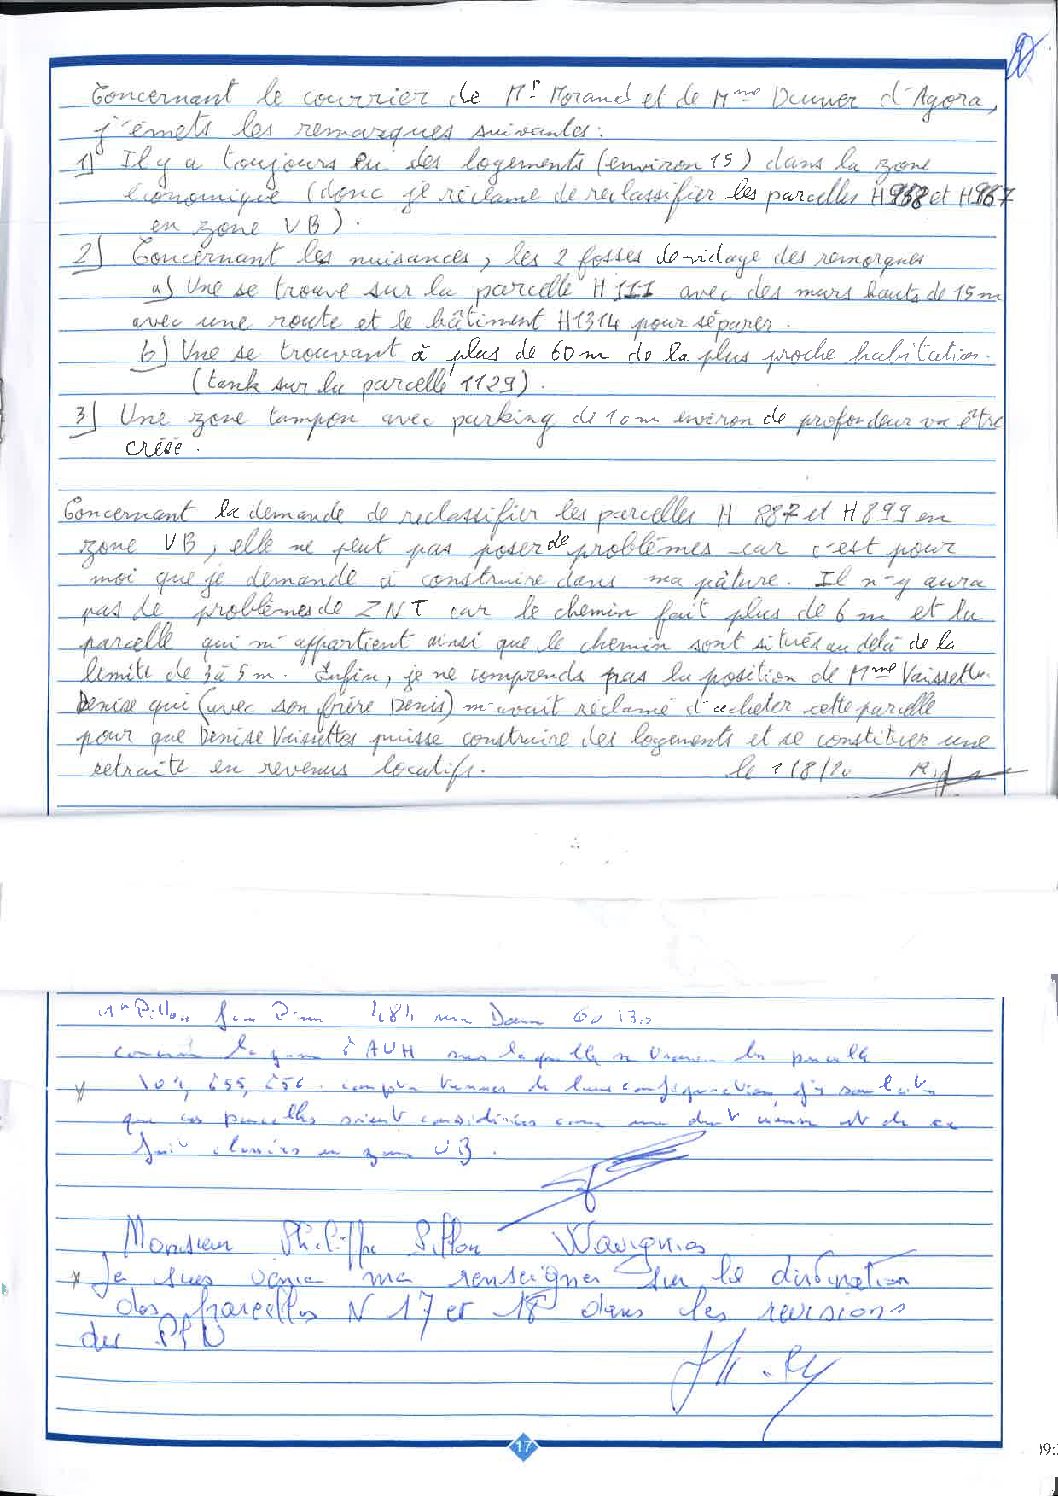 Concernant le courrier de Mr Morand et de Mme Dunver d'Agora,
j'émets les remarques suivantes :
1) Il y a toujours eu des logements (environ 15) dans la zone
économique (donc je réclame de reclassifier les parcelles H 968 et H 967
en zone UB).
2) Concernant les nuisances, les 2 fosses de vidage des remorques
a) Une se trouve sur la parcelle H 111 avec des murs hauts de 15 m
avec une route et le bâtiment H1314 pour séparer.
b) Une se trouvant à plus de 60 m de la plus proche habitation.
(tank sur la parcelle 1129).
3) Une zone tampon avec parking de 10 m environ de profondeur va être
créée.
Concernant la demande de reclassifier les parcelles H 887 et H 899 en
zone UB, elle ne peut pas poser de problèmes car c'est pour
moi que je demande à construire dans ma pâture. Il n'y aura
pas de problèmes de ZNT car le chemin fait plus de 6 m et la
parcelle qui m'appartient ainsi que le chemin sont situés au delà de la
limite de 3 à 5 m. Enfin, je ne comprends pas la position de Mme Vaissette
Denise qui (avec son frère Denis) m'avait réclamé d'acheter cette parcelle
pour que Denise Vaissettes puisse construire des logements et se constituer une
retraite en revenus locatifs. le 1/8/20
Mr Pillon Jean Pierre 484 rue 60130
concerne la zone 2 AUH sur laquelle se trouve les parcelle
104, 255, 256. compte tenu de leur configuration, je souhaite
que ces parcelles soient considérées comme une dent creuse et de ce
fait classées en zone UB.
Monsieur Philippe Pillon Wavignies
Je suis venu me renseigner sur la destination
des parcelles N 17 et 18 dans les revisions
du PLU
17